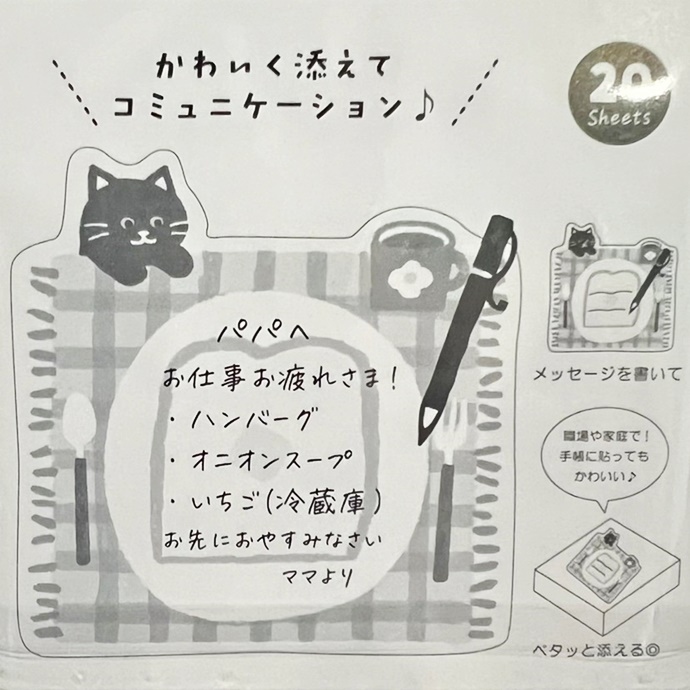 かわいく添えて
コミュニケーション♪
20
Sheets
パパへ
お仕事お疲れさま!
・ハンバーグ
・オニオンスープ
・いちご(冷蔵庫)
お先におやすみなさい
ママより
メッセージを書いて
職場や家庭で!
手帳に貼っても
かわいい♪
ペタッと添える◎